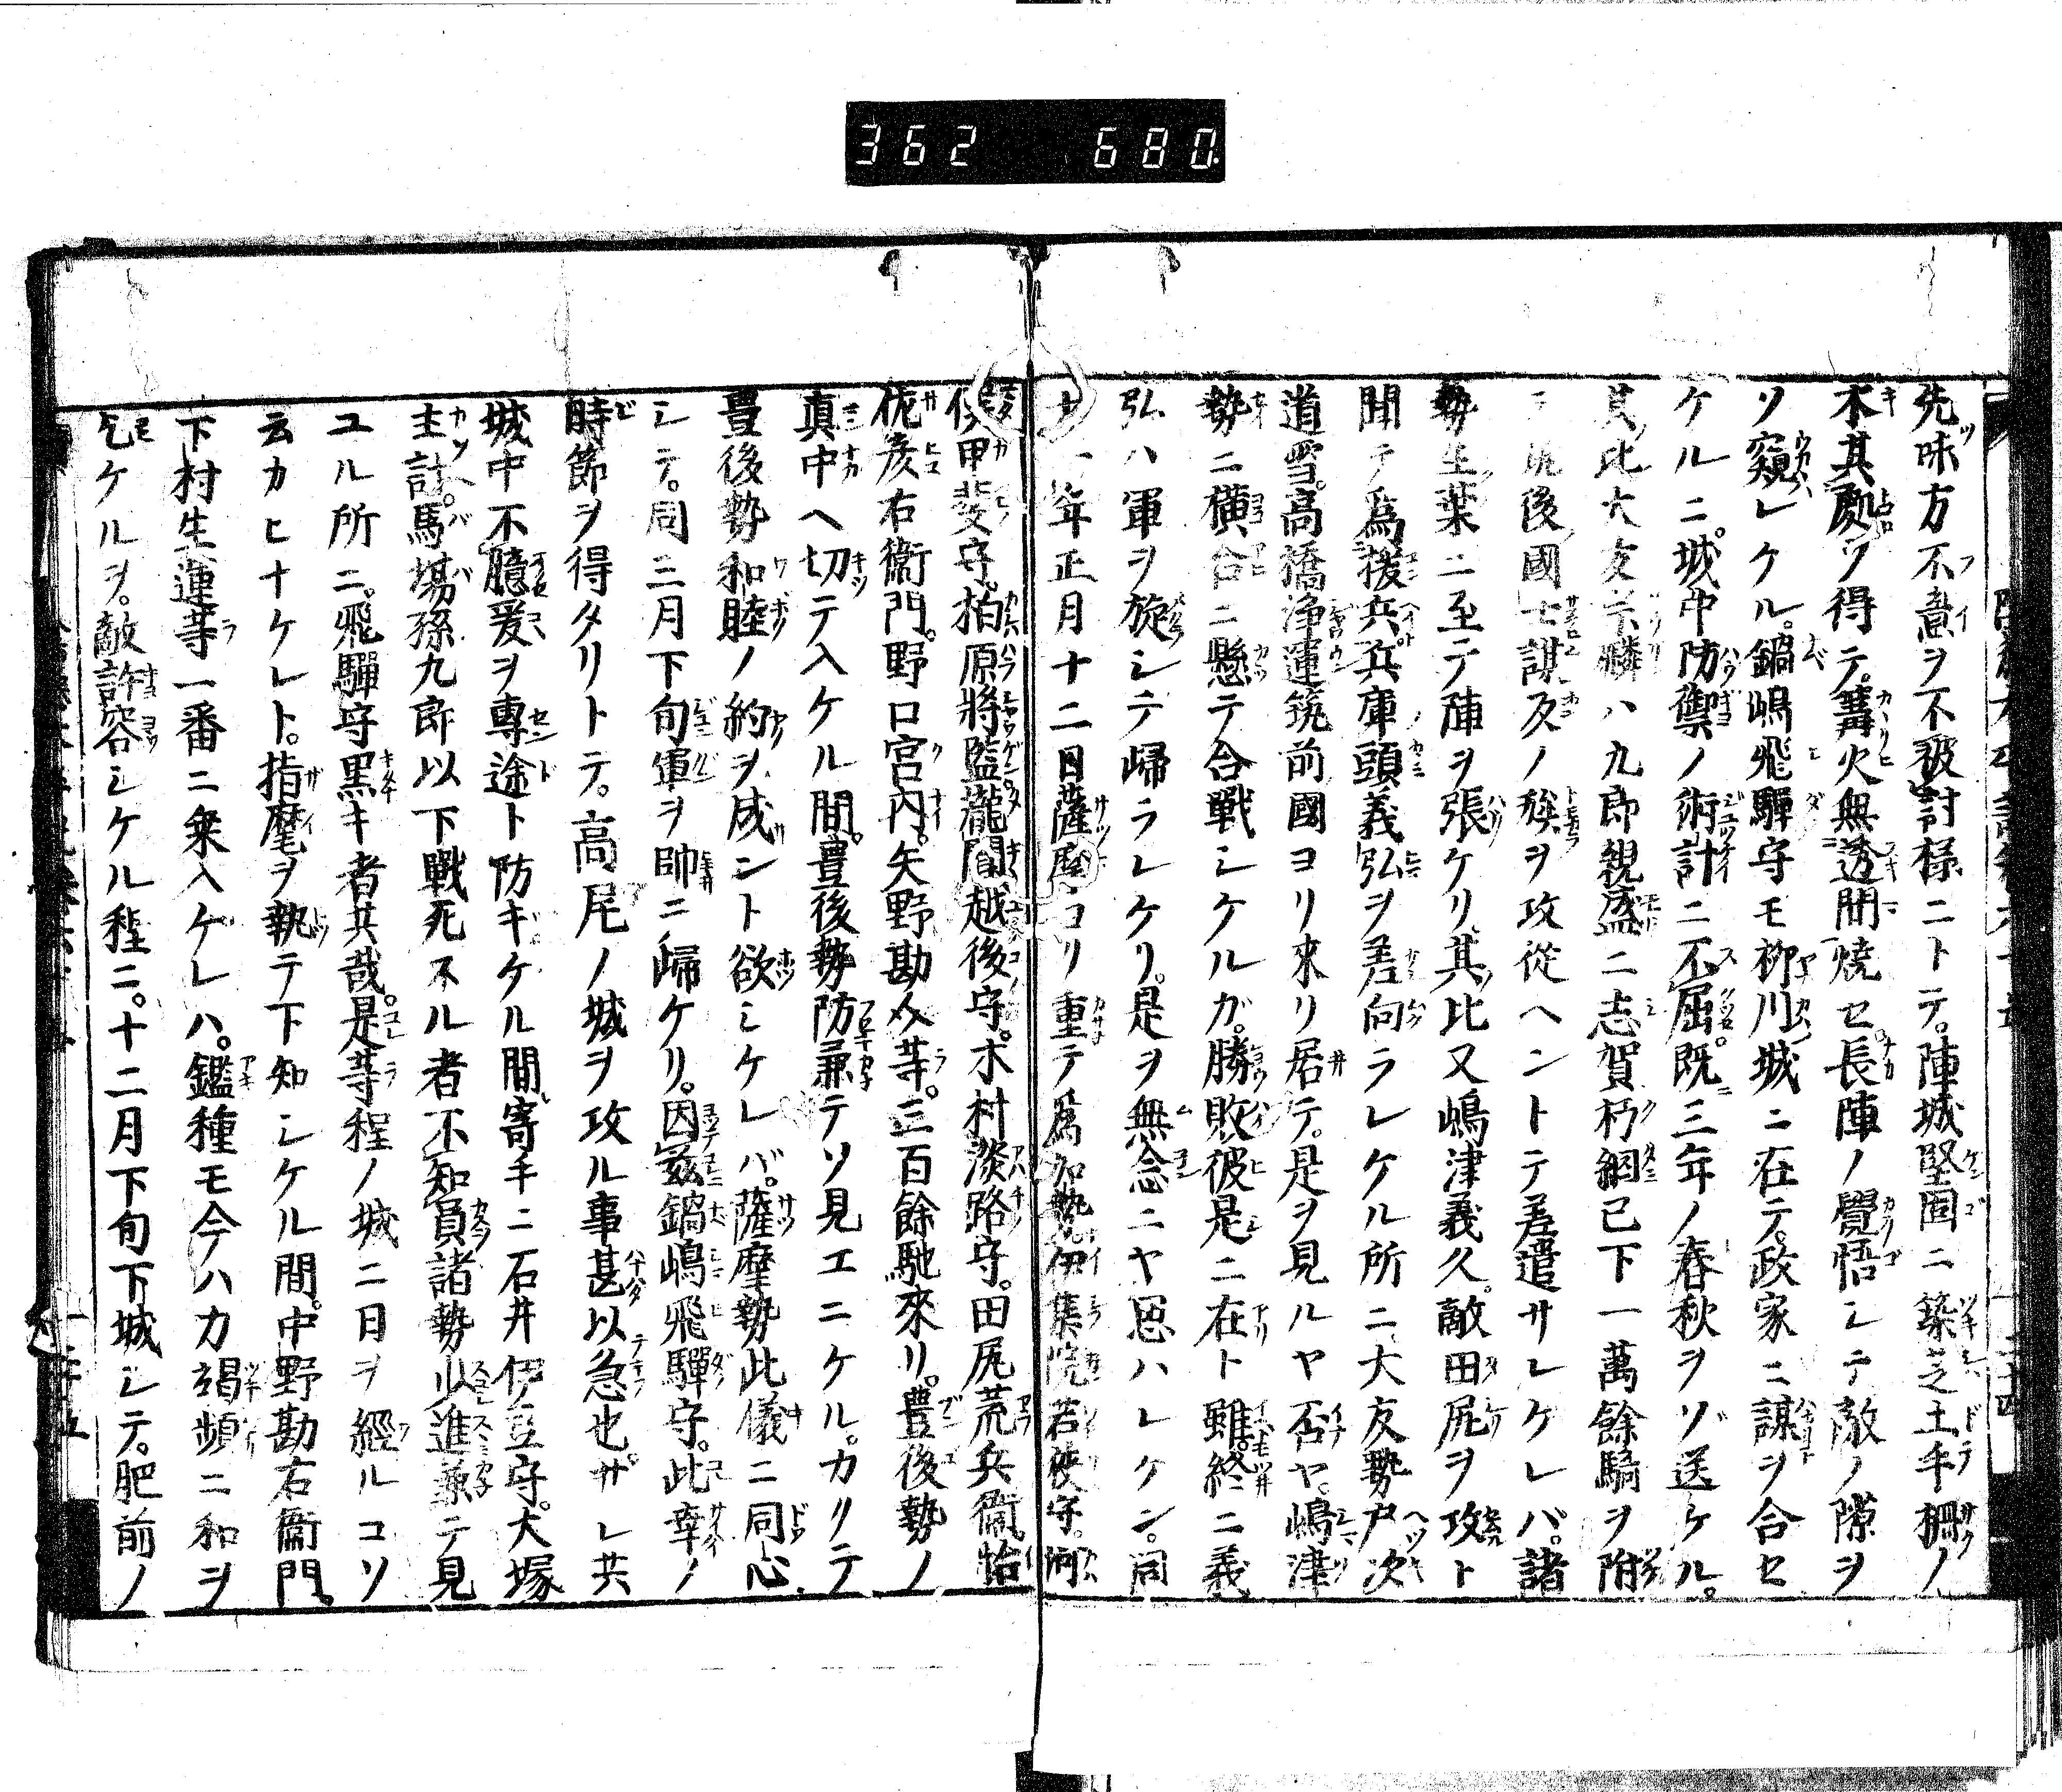 362 680
先味方不意ヲ不被討様ニトテ。陣城堅固ニ築芝土手柵ノ
木其處ヲ得テ。篝火無透間焼セ。長陣ノ覺悟シテ敵ノ隙ヲ
ソ窺レケル。鍋嶋飛驒守モ柳川城ニ在テ。政家ニ謀ヲ合セ
ケルニ。城中防禦ノ術計ニ不屈。既三年ノ春秋ヲゾ送ケル。
其比大友宗麟ハ九郎親盛ニ志賀朽網已下一萬餘騎ヲ附
後國士謀反ノ族ヲ攻從ヘントテ差遣サレケレバ。諸
勢生葉ニ至テ陣ヲ張ケリ。其比又嶋津義久。敵田尻ヲ攻ト
聞テ爲援兵兵庫頭義弘ヲ差向ラレケル所ニ大友勢戸次
道雪。高橋浄運筑前國ヨリ來リ居テ。是ヲ見ルヤ否ヤ。嶋津
勢ニ横合ニ懸テ合戰シケルガ。勝敗彼是ニ在ト雖。終ニ義
弘ハ軍ヲ旋シテ歸ラレケリ。是ヲ無念ニヤ思ハレケン。同
年正月十二日薩摩ヨリ重テ爲加勢伊集院若狹守。河
俣甲斐守。柏原將監。瀧聞越後守。木村淡路守。田尻荒兵衞。怡
佐彦右衞門。野口宮内。矢野勘介等。三百餘馳來リ。豊後勢ノ
真中ヘ切テ入ケル間。豊後勢防兼テソ見エニケル。カリテ
豊後勢和睦ノ約ヲ成ント欲シケレバ。薩摩勢此儀ニ同心
シテ。同三月下旬軍ヲ帥ニ歸ケリ。因茲鍋嶋飛驒守。此幸ノ
時節ヲ得タリトテ。高尾ノ城ヲ攻ル事甚以急也。サレ共
城中不臆爰ヲ專途ト防ギケル間。寄手ニ石井伊豆守。大塚
主計。馬場孫九郎以下戰死スル者不知員諸勢少進兼テ見
ユル所ニ。飛驒守黒キ者其哉。是等程ノ城ニ日ヲ經ルコソ
云カヒナケレト。指麾ヲ執テ下知シケル間。中野勘右衞門。
下村生運等一番ニ乘入ケレハ。鑑種モ今ハカ竭頻ニ和ヲ
乞ケルヲ。敵許容シケル程ニ。十二月下旬下城シテ。肥前ノ